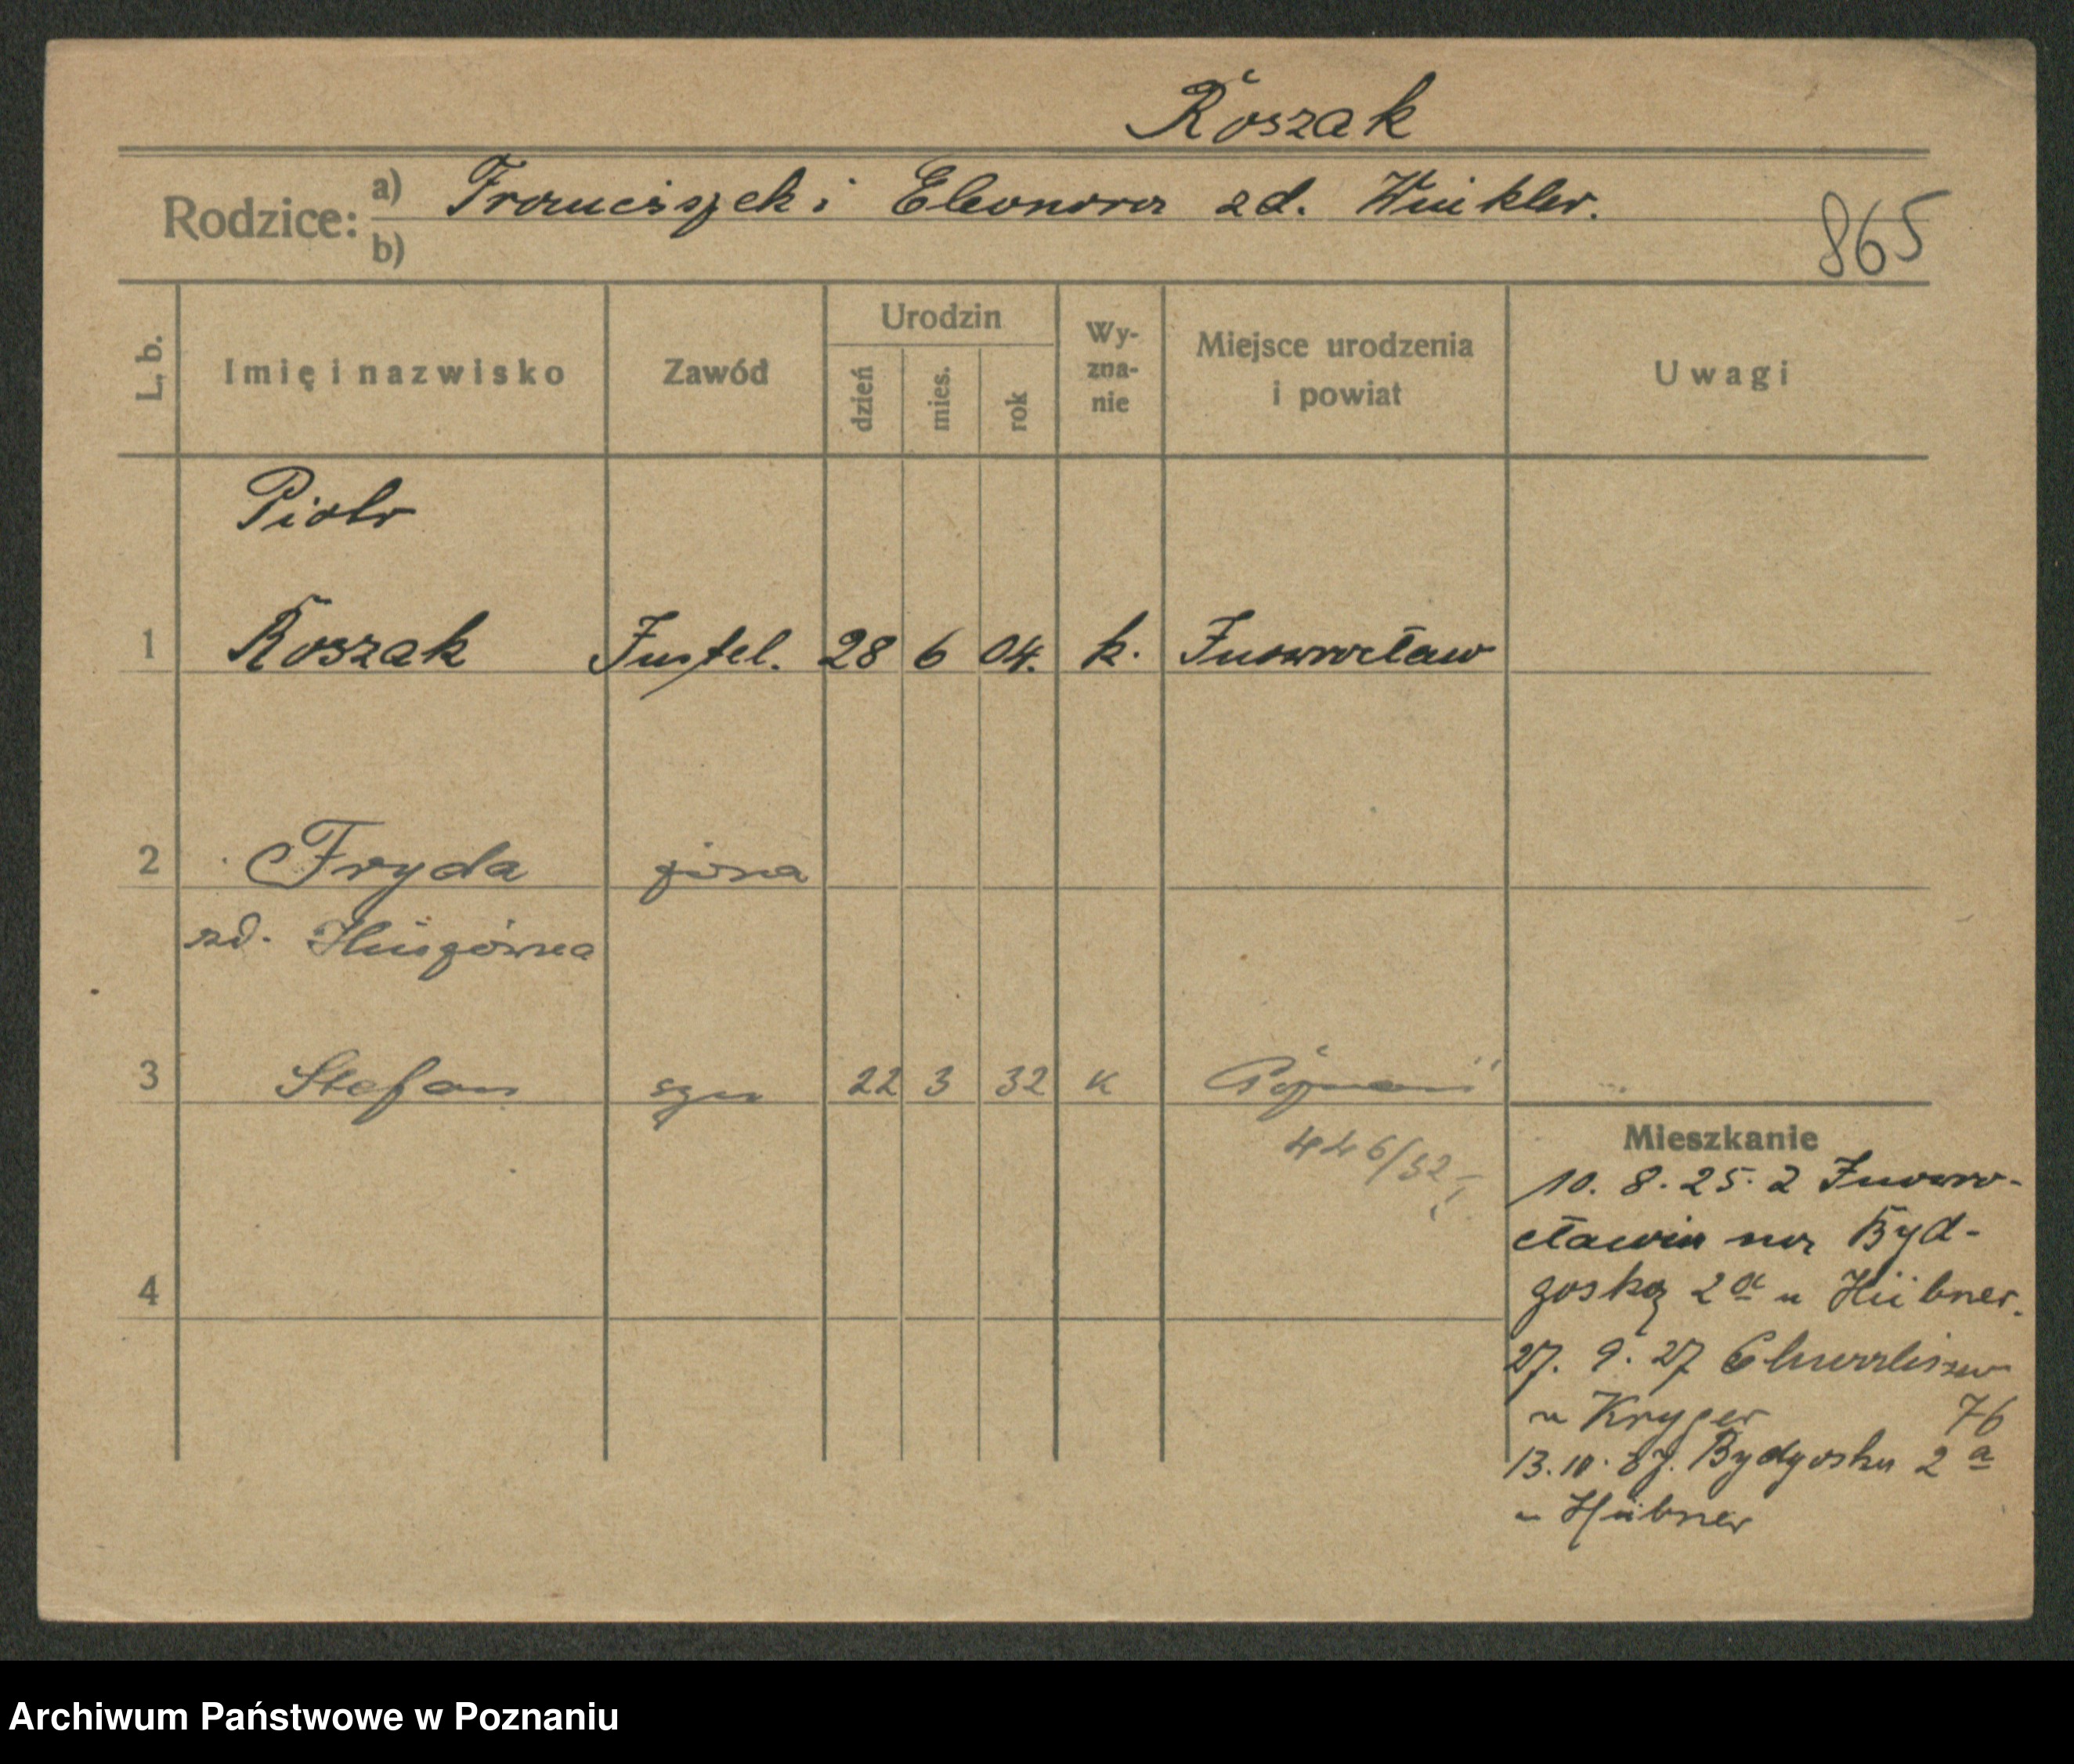 Roszak
Rodzice: a) Franciszek i Eleonora zd. Winkler.
b)
865
L. b.
Imię i nazwisko
Zawód
Urodzin
dzień
mies.
rok
Wy-
zna-
nie
Miejsce urodzenia
i powiat
Uwagi
Piotr
1 Roszak 28 6 04. k. Inowrocław
2 Fryda żona
zd.
3 Stefan syn 22 3 32 k Poznań
446/32
4
Mieszkanie
10. 8. 25. z Inowro-
cławia na Byd-
goską 2a u Hübner.
27. 9. 27
u Kryger 76
13. 10. 27. Bydgoska 2a
u Hübner
Archiwum Państwowe w Poznaniu